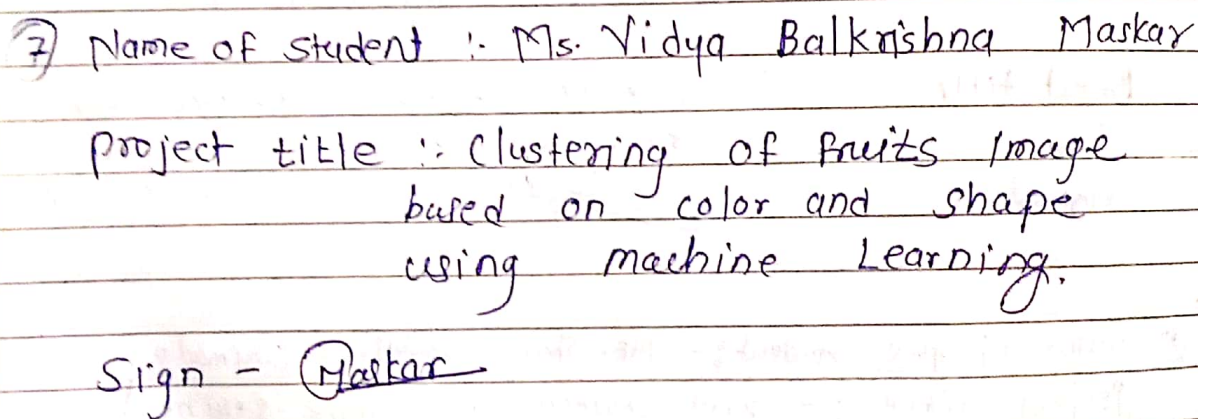 7) Name of student :- Ms. Vidya Balkrishna Maskar
project title :- Clustering of Fruits Image
based on color and shape
using machine Learning.
Sign - Maskar